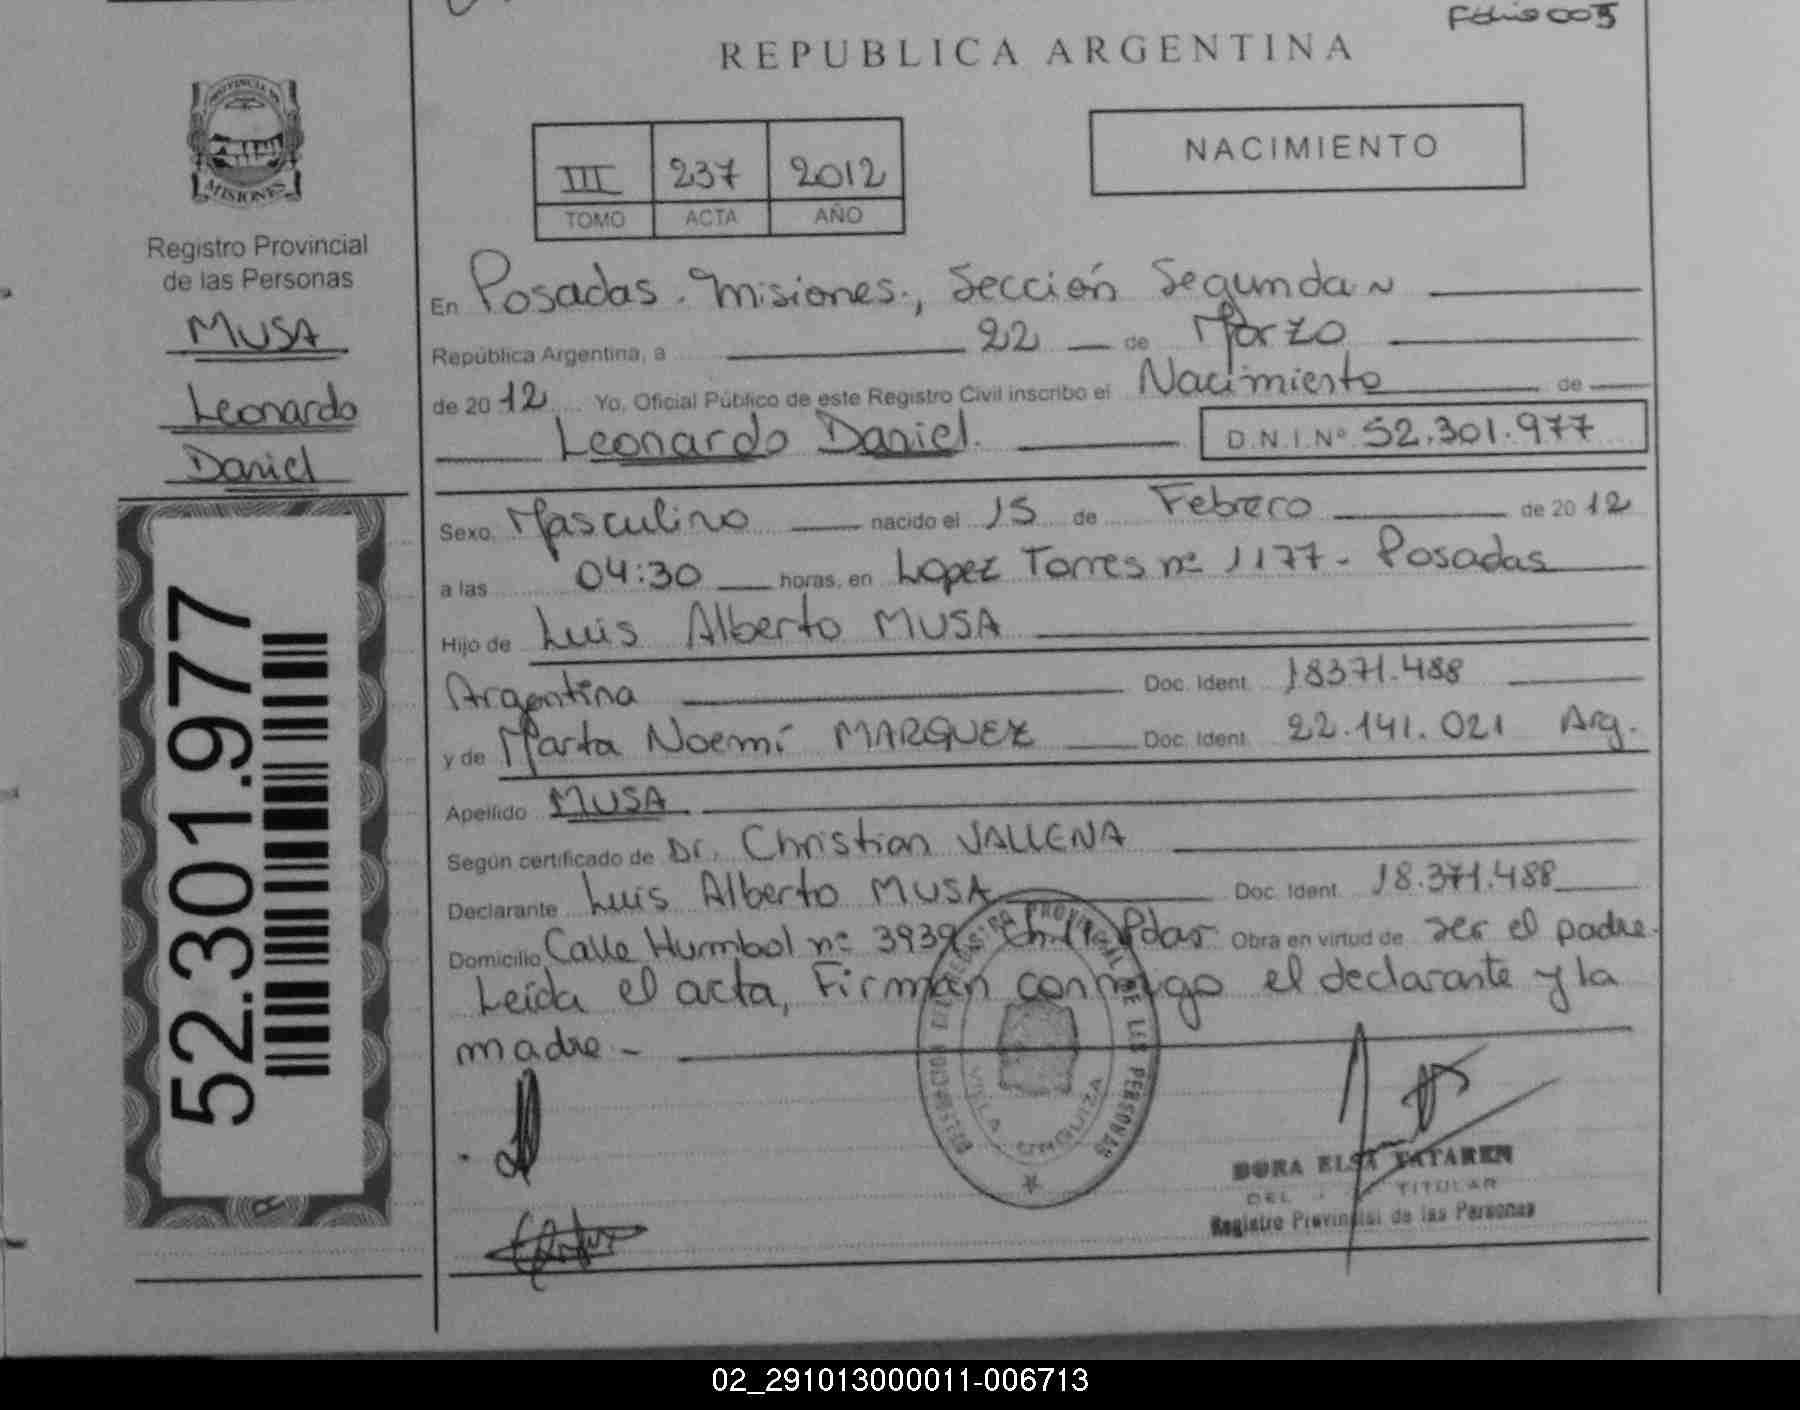 Folio 005
REPUBLICA ARGENTINA
NACIMIENTO
III 237 2012
TOMO ACTA AÑO
PROVINCIA DE
MISIONES
Registro Provincial
de las Personas
MUSA
Leonardo
Daniel
52.301.977
En Posadas. Misiones., Sección Segunda
República Argentina, a 22 de Marzo
de 2012 Yo, Oficial Público de este Registro Civil inscribo el Nacimiento de
Leonardo Daniel. D.N.I.Nº 52.301.977
Sexo Masculino nacido el 15 de Febrero de 2012
a las 04:30 horas, en Lopez Torres nº 1177 - Posadas
Hijo de Luis Alberto MUSA
Argentina Doc. Ident. 18371.488
y de Marta Noemí MARQUEZ Doc. Ident. 22.141.021 Arg.
Apellido MUSA
Según certificado de Dr. Christian VALLENA
Declarante Luis Alberto MUSA Doc. Ident. 18.371.488
Domicilio Calle Humbol nº 3939 Pdas Obra en virtud de ser el padre.
Leída el acta, Firman conmigo el declarante y la
madre.-
REGISTRO PROVINCIAL DE LAS PERSONAS
VILLA URQUIZA
DORA ELSA TATAREN
DEL TITULAR
Registro Provincial de las Personas
02_291013000011-006713